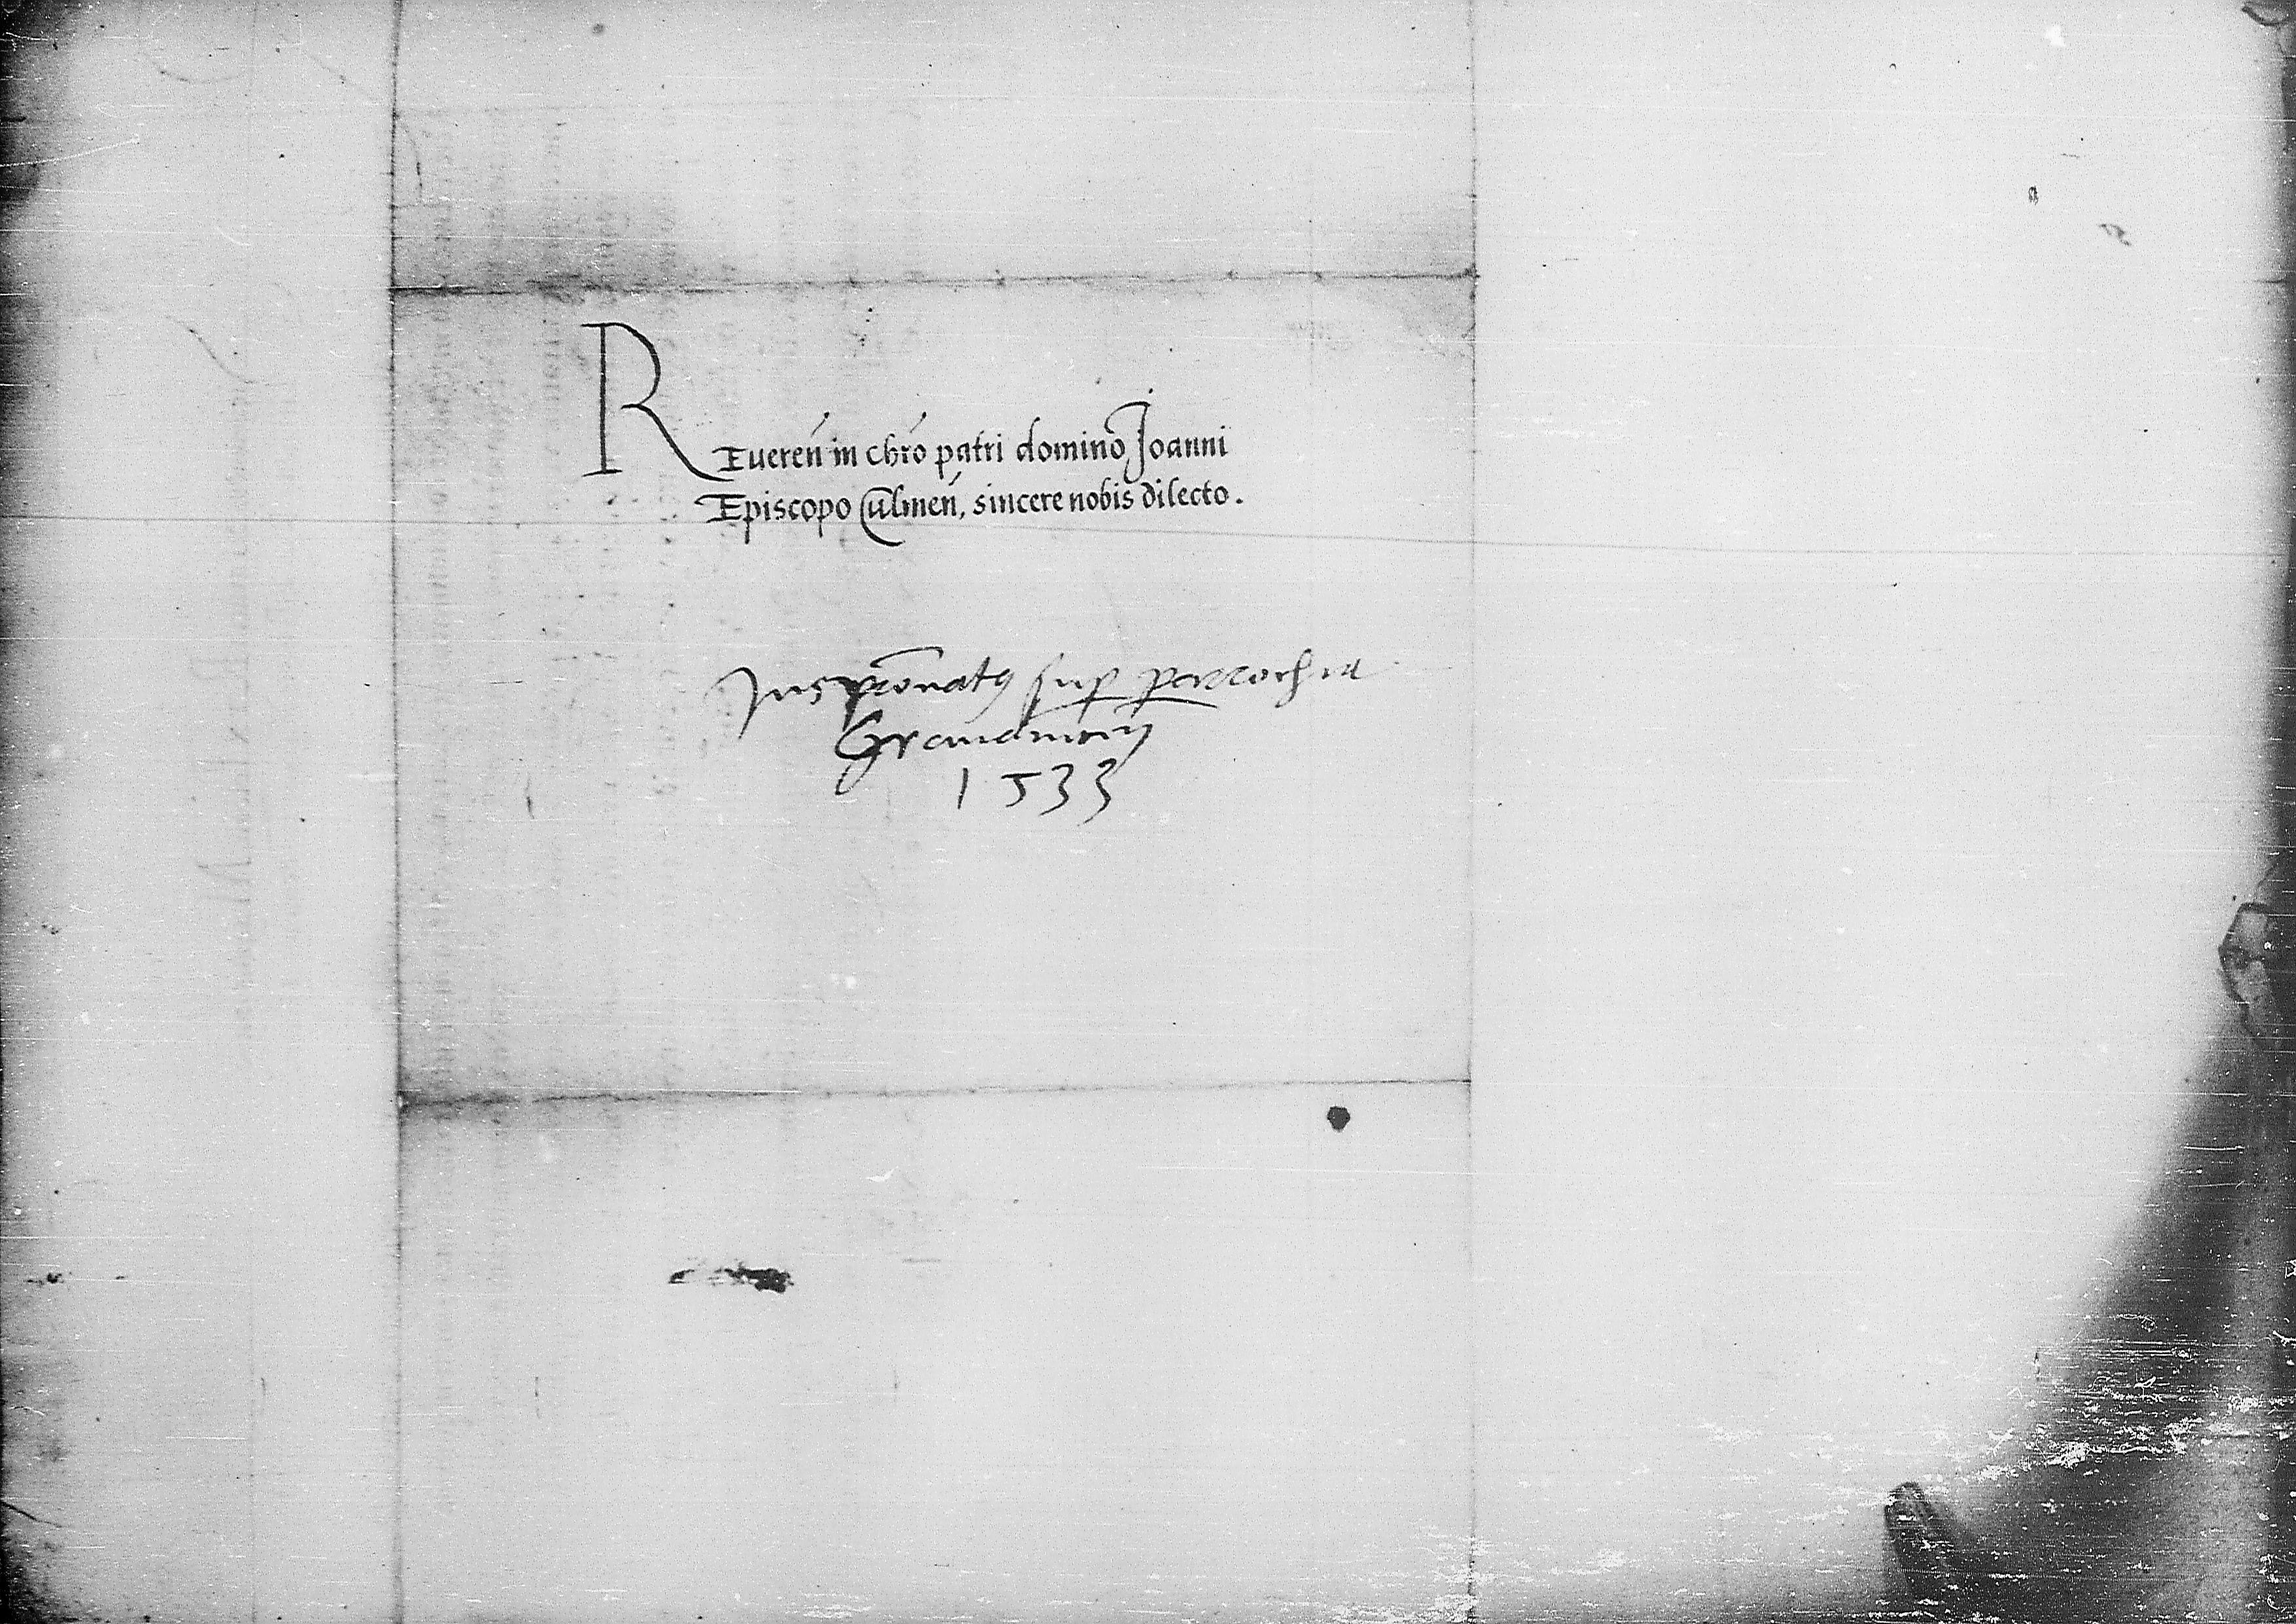 REueren̄ in chr̄o patri domino Joanni
Episcopo Culmen̄, sincere nobis dilecto.
Jus pr̄onatꝯ suꝑ parrochia
1533